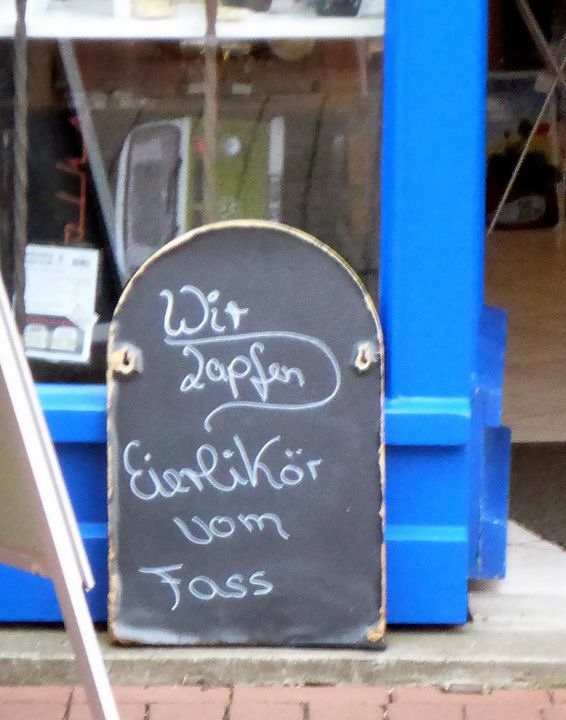 Wir
zapfen
Eierlikör
vom
Fass